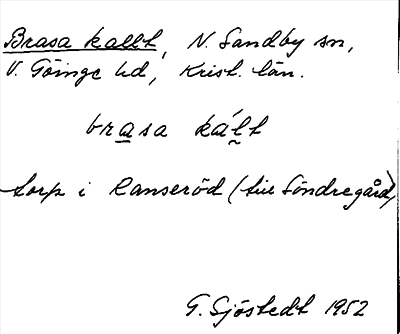 Brasa kallt, N. Sandby sn,
V. Göinge hd, Krist. län.
brasa kált
torp i Ranseröd (till Söndregård)
G. Sjöstedt 1952